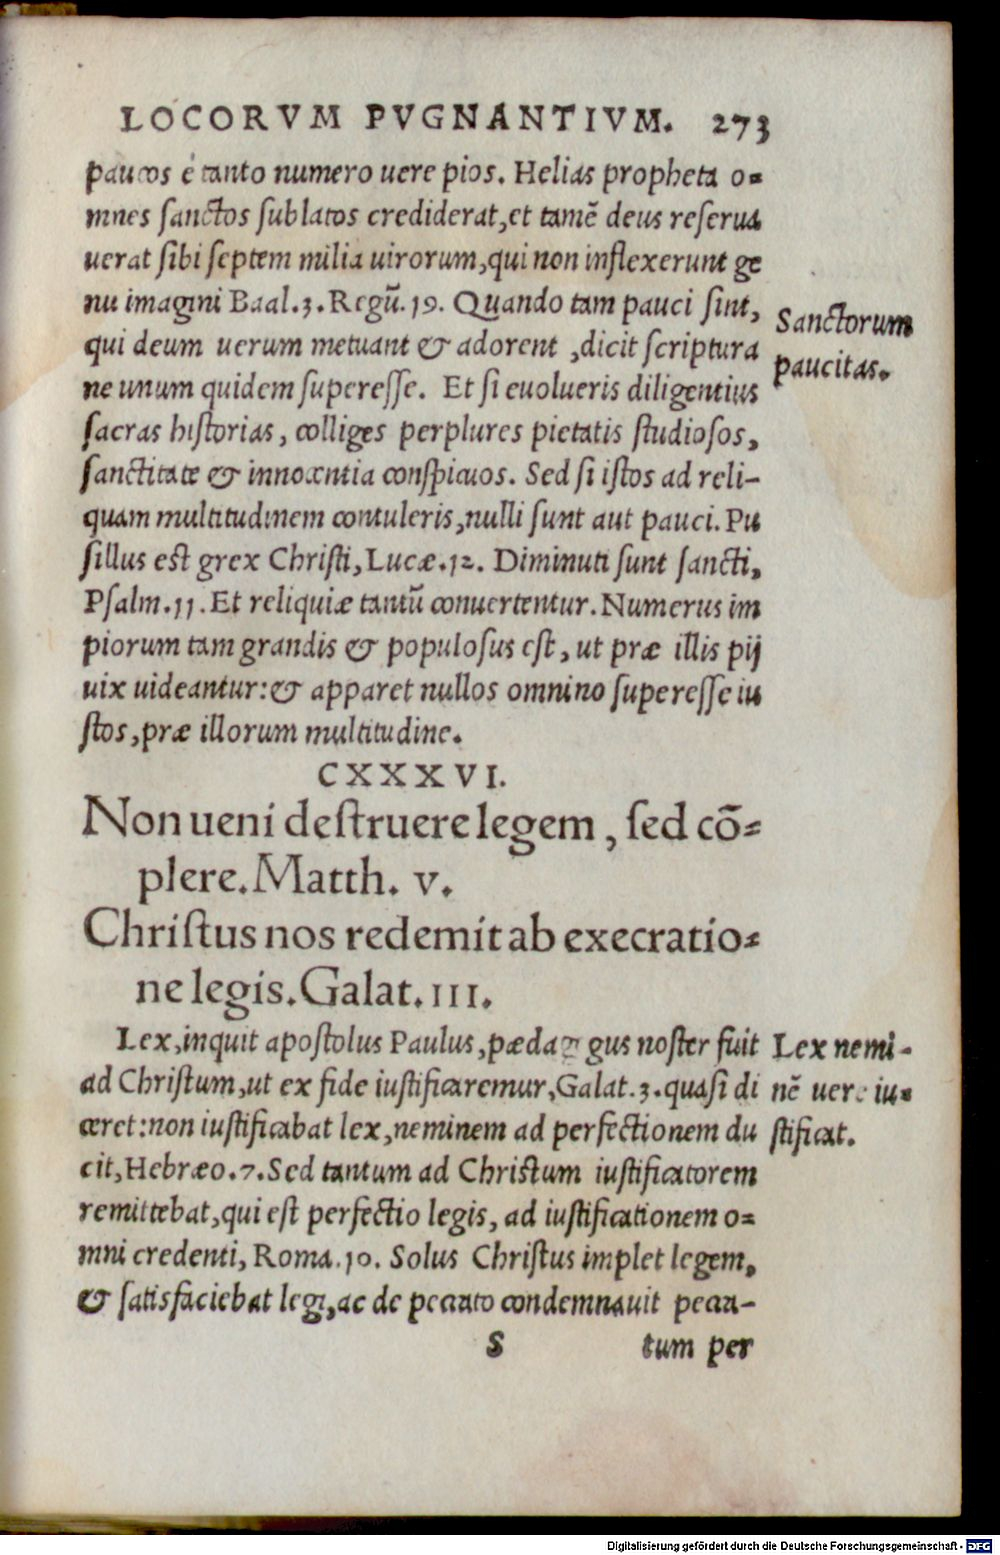 LOCORVM PVGNANTIVM. 273
paucos é tanto numero uere pios. Helias propheta o=
mnes sanctos sublatos crediderat, et tamē deus reserua
uerat sibi septem milia uirorum, qui non inflexerunt ge
nu imagini Baal. 3. Regū. 19. Quando tam pauci sint,
qui deum uerum metuant & adorent, dicit scriptura
ne unum quidem superesse. Et si euolueris diligentius
sacras historias, colliges perplures pietatis studiosos,
sanctitate & innocentia conspicuos. Sed si istos ad reli-
quam multitudinem contuleris, nulli sunt aut pauci. Pu
sillus est grex Christi, Lucæ. 12. Diminuti sunt sancti,
Psalm. 11. Et reliquiæ tantū conuertentur. Numerus im
piorum tam grandis & populosus est, ut præ illis pij
uix uideantur: & apparet nullos omnino superesse iu
stos, præ illorum multitudine.
Sanctorum
paucitas.
CXXXVI.
Non ueni destruere legem, sed cō=
plere. Matth. v.
Christus nos redemit ab execratio=
ne legis. Galat. III.
Lex, inquit apostolus Paulus, pædagogus noster fuit
ad Christum, ut ex fide iustificaremur, Galat. 3. quasi di
ceret: non iustificabat lex, neminem ad perfectionem du
cit, Hebræo. 7. Sed tantum ad Christum iustificatorem
remittebat, qui est perfectio legis, ad iustificationem o=
mni credenti, Roma. 10. Solus Christus implet legem,
& satisfaciebat legi, ac de peccato condemnauit pecca-
Lex nemi-
nē uere iu=
stificat.
S tum per
Digitalisierung gefördert durch die Deutsche Forschungsgemeinschaft - DFG